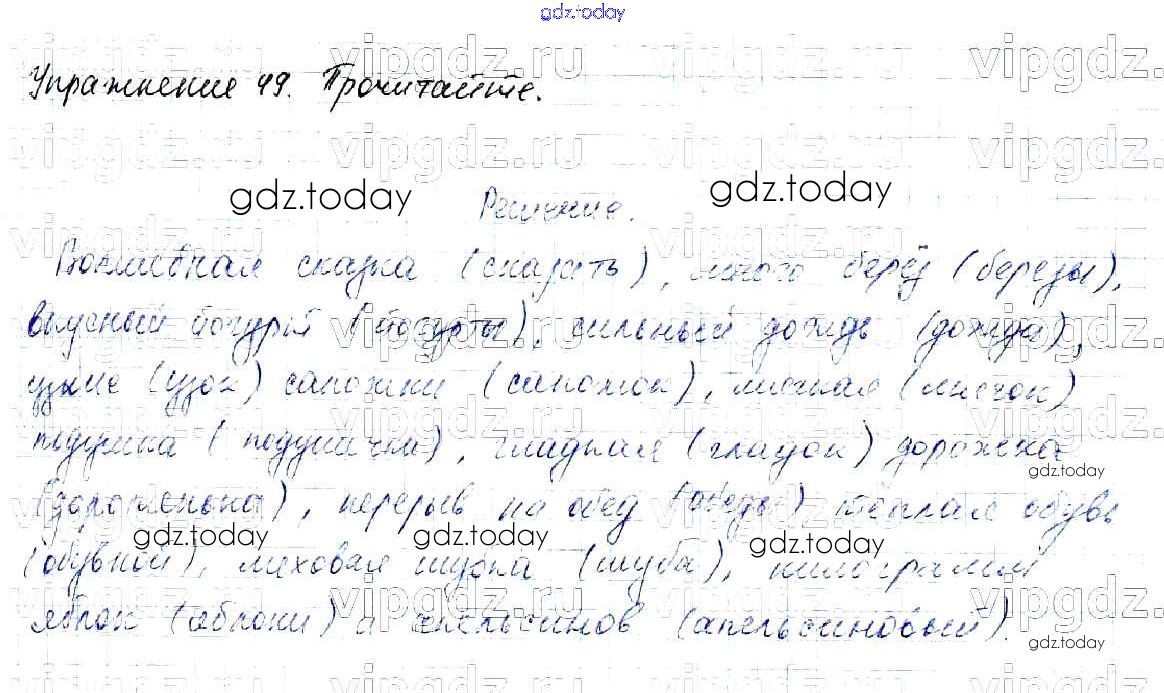 gdz.today
vipgdz.ru vipgdz.ru vipgdz.ru vipgdz
Упражнение 49. Прочитайте.
vipgdz.ru vipgdz.ru vipgdz.ru vipgdz
gdz.today Решение. gdz.today
Волшебная сказка (сказать), много берёз (березы),
вкусный йогурт (йогурты), сильный дождь (дождя),
узкие (узок) сапожки (сапожок), мягкая (мягок)
подушка (подушечка), гладкая (гладок) дорожка
gdz.today
(дороженька), перерыв на обед (обеды) теплая обувь
gdz.today gdz.today
(обувной), меховая шубка (шуба), килограмм
яблок (яблоки) и апельсинов (апельсиновый).
gdz.today